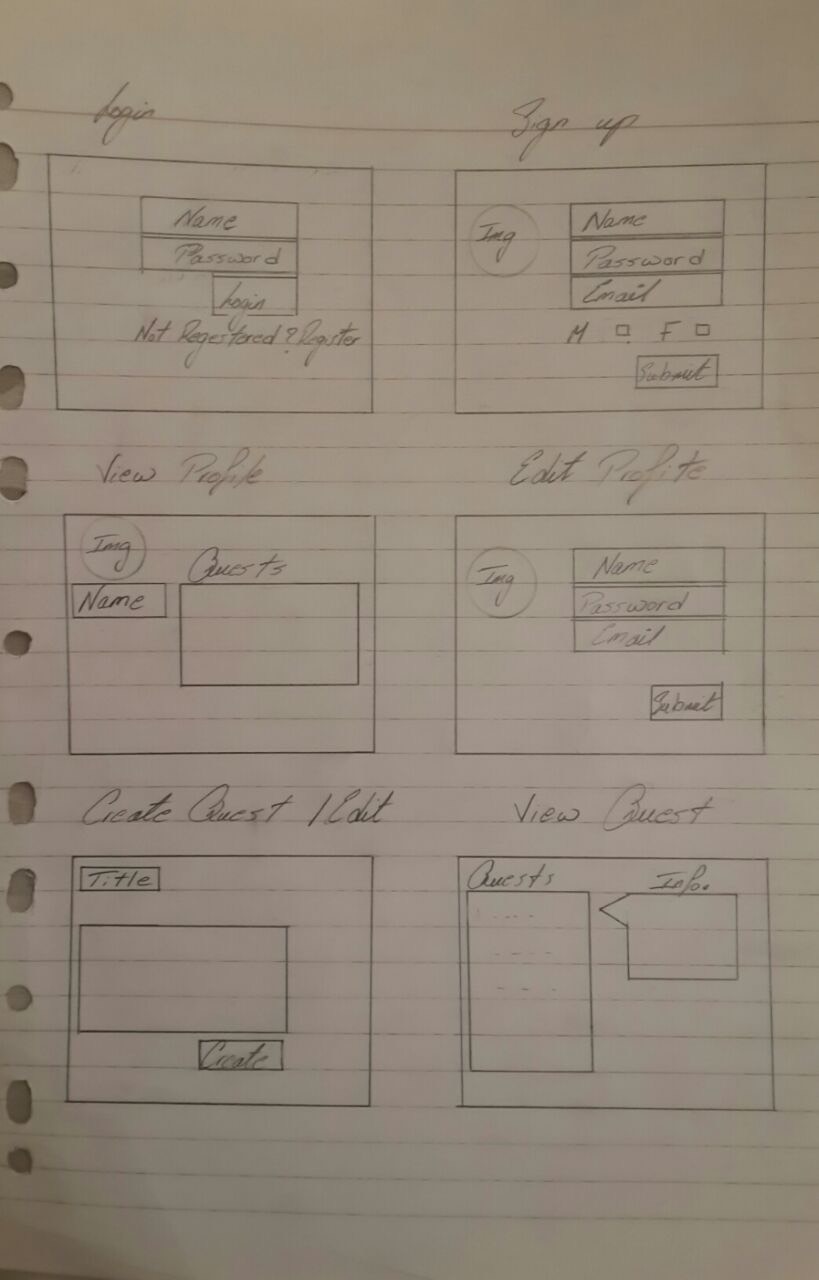 Login
Name
Password
Login
Not Regestered ? Register
Sign up
Img
Name
Password
Email
M F
Submit
View Profile
Img
Quests
Name
Edit Profile
Img
Name
Password
Email
Submit
Create Quest / Edit
Title
Create
View Quest
Quests
Info.